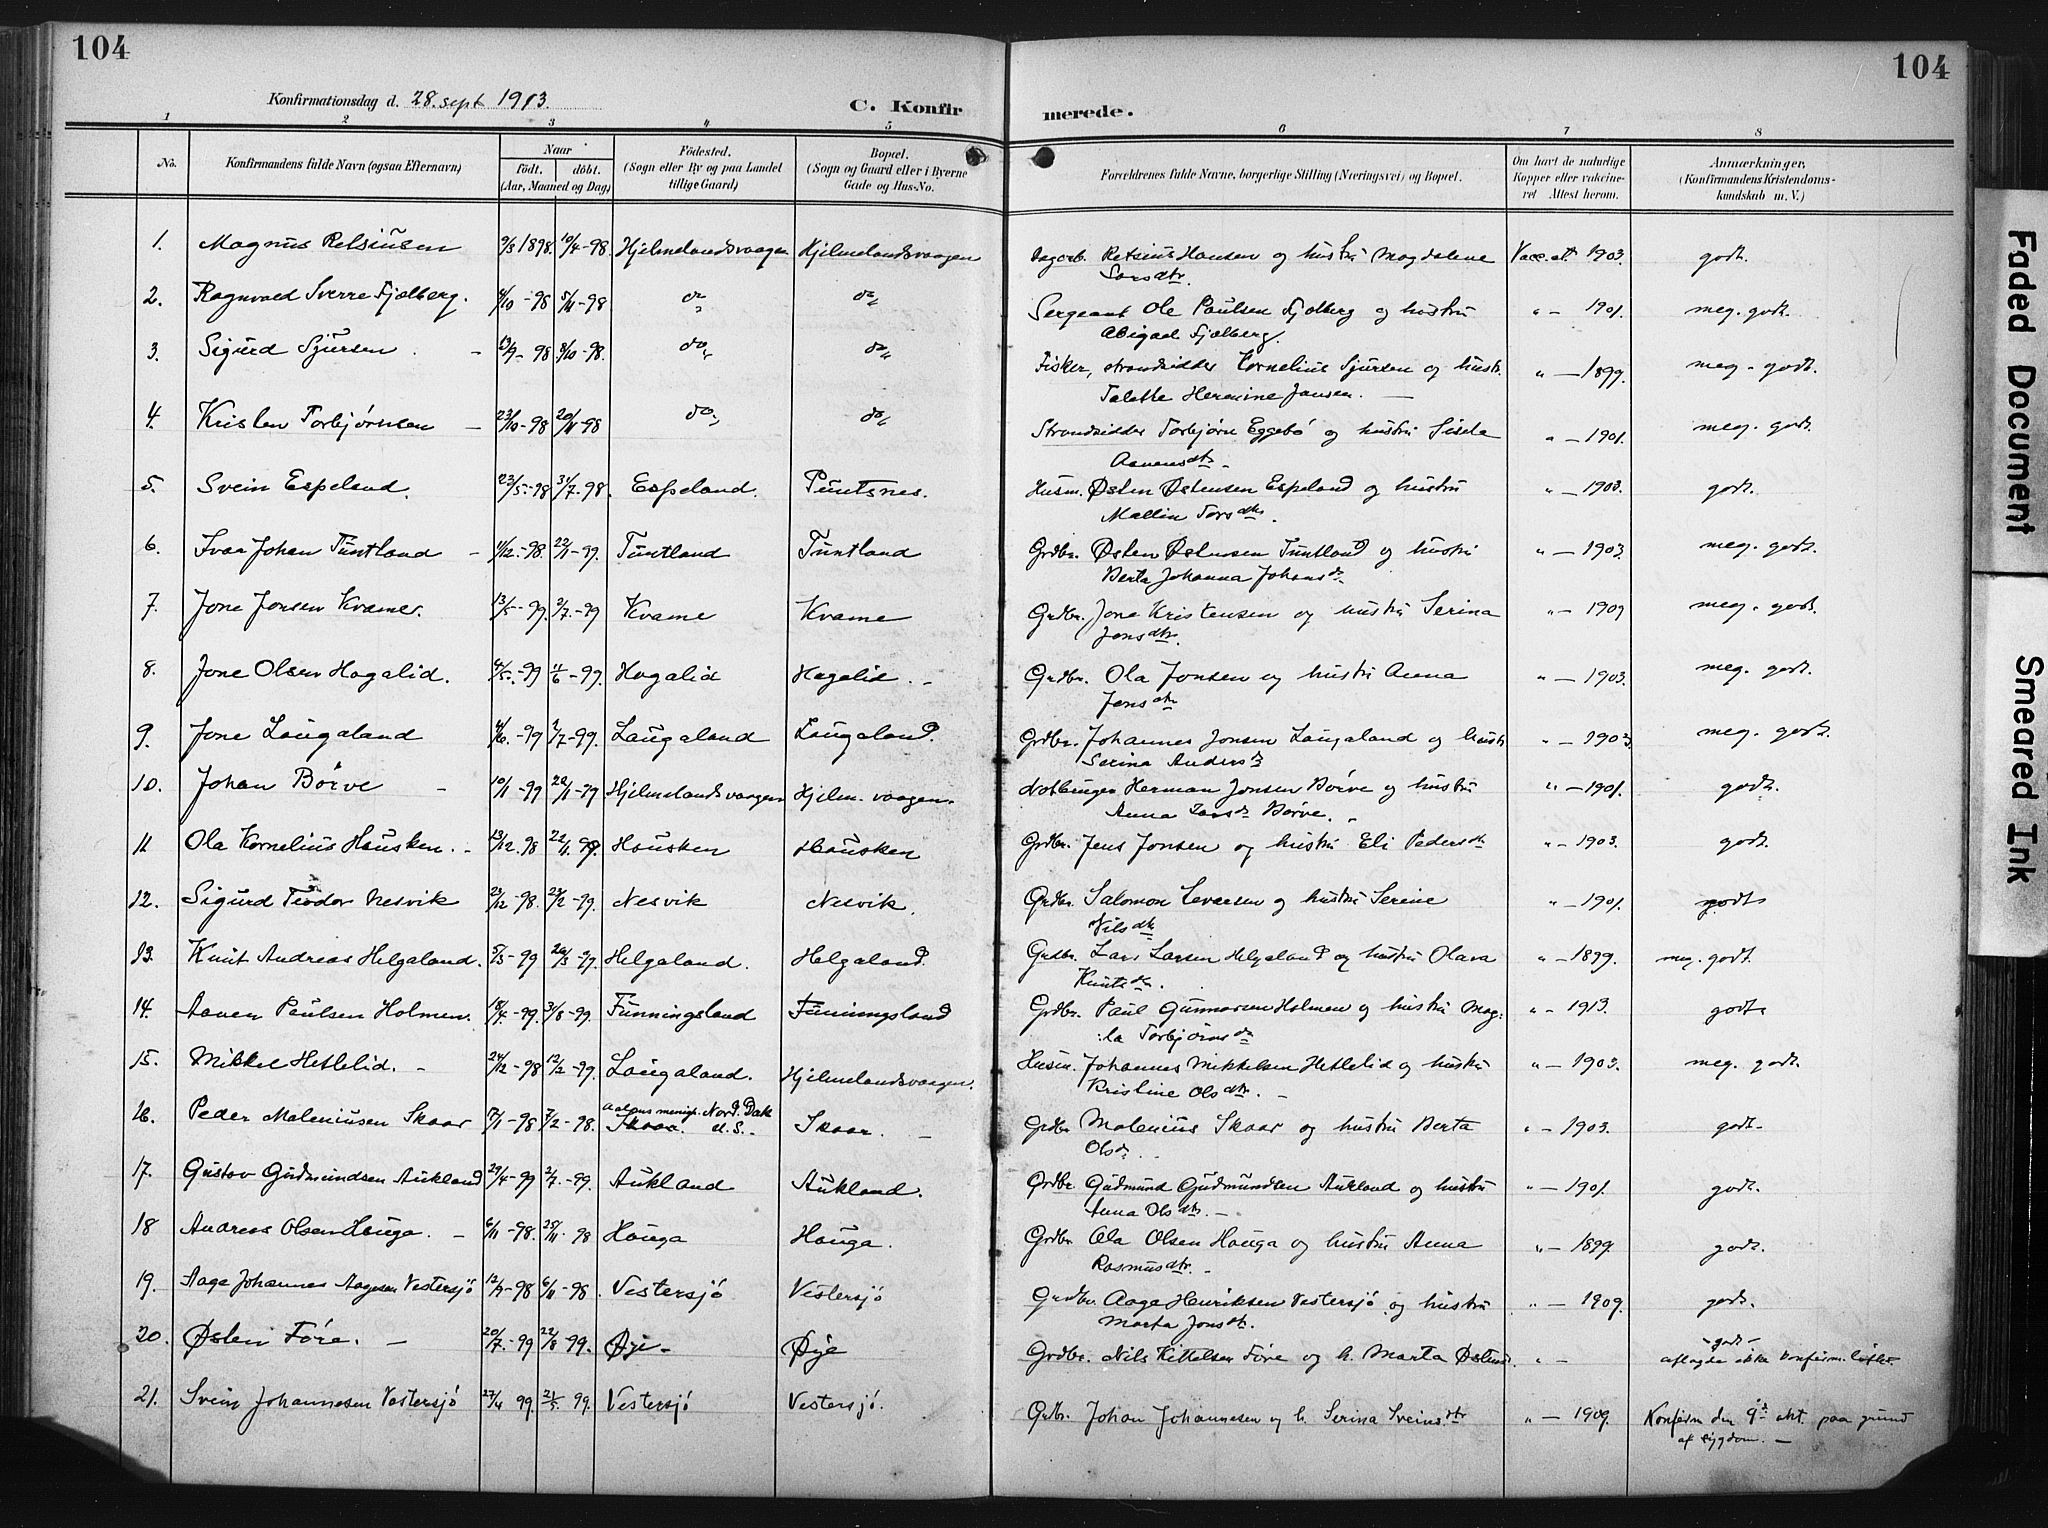 104
104
Konfirmationsdag d. 28. sept 1913.
C. Konfirmerede.
1 2 3 4 5 6 7 8
No.
Konfirmandens fulde Navn (ogsaa Efternavn)
Naar
födt. döbt.
(Aar, Maaned og Dag)
Födested.
(Sogn eller By og paa Landet
tillige Gaard)
Bopæl.
(Sogn og Gaard eller i Byerne
Gade og Hus-No.
Forældrenes fulde Navne, borgerlige Stilling (Næringsvei) og Bopæl.
Om havt de naturlige
Kopper eller vakcine-
ret Attest herom.
Anmærkninger,
(Konfirmandens Kristendoms-
kundskab m. V.)
1. Magnus Retsiusen 9/3 1898. 10/4-98 Hjelmelandsvaagen Hjelmelandsvaagen Retsius Hansen og hustru Magdalene Vacc. att 1903. godt.
Larsdtr.
2. Ragnvald Sverre Fjelberg. 4/10-98 5/11-98 do do Sergeant Ole Paulsen Fjelberg og hustru " - 1901. meg. godt.
Abigael Fjelberg.
3. Sigurd Sjursen - 13/9-98 8/10-98. do do Fisker, strandsidder Kornelius Sjursen og hustr. " - 1899. meg. godt.
Talette Hermine Jansen. -
4. Kristen Torbjörnsen - 23/10-98 20/11-98 do do Strandsidder Torbjörn Eggebö og hustru Sisela " - 1901. meg. godt.
Aanensdtr. -
5. Svein Espeland. 23/5-98 31/7-98. Espeland. Puntsnes. Husm. Østen Østensen Espeland og hustru " - 1903. godt.
Mallin Torsdtr.
6. Ivar Johan Tuntland - 11/12-98. 22/1-99. Tuntland Tuntland Grdbr. Østen Østensen Tuntland og hustru " - 1903. meg. godt.
Berta Johanna Johansd.
7. Jone Jonsen Kvame. 13/5-99. 2/7-99 Kvame Kvame Grdbr. Jone Kristensen og hustru Serina " - 1909 meg. godt.
Jonsdtr.
8. Jone Olsen Hagalid. 4/5-99 11/6-99. Hagalid Hagalid. - Grdbr. Ola Jonsen og hustru Anna " - 1903. meg. godt.
Jonsdtr
9. Jone Laugaland 4/6-99 2/7-99. Laugaland Laugaland. Grdbr. Johannes Jonsen Laugaland og hustr. " - 1903. meg. godt.
Serina Andersd
10. Johan Börve - 10/1-99 29/1-99 Hjelmelandsvaagen Hjelm. vaagen. Notbruger Herman Jonsen Börve og hustru " - 1901. godt.
Anna Larsd Börve.
11 Ola Kornelius Hausken. - 13/12.98 22/1.99. Hausken Hausken Grdbr. Jens Jonsen og hustru Eli Pedersdt " - 1903. godt.
12. Sigurd Teodor Nesvik 23/12-98. 23/2-99. Nesvik Nesvik. Grdbr. Salomon Levarsen og hustru Serine " - 1901. godt
Nilsdtr
13. Knut Andreas Helgaland. 5/3-99 26/3-99. Helgaland. Helgaland. Grdbr. Lars Larsen Helgaland og hustru Olava " - 1899. meg. godt.
Knutsdtr.
14. Aanen Paulsen Holmen. 18/4-99. 31/8-99. Funningsland Funningsland Grdbr. Paul Gunnarsen Holmen og hustru Mag- " - 1913. godt
la Torbjörnsd
15. Mikkel Hetlelid. - 24/12-98 12/2-99. Laugaland. Hjelmelandsvaagen. Husm. Johannes Mikkelsen Hetlelid og hustru " - 1903. meg. godt.
Kristine Olsdtr. -
16. Peder Maleniusen Skaar 7/1-98 7/2-98. menigh. Nord. Dak. Skaar. - Grdbr Malenius Skaar og hustru Berta " - 1903. godt
Skaar. N. S.
Olsd
17. Gustav Gudmundsen Aukland 29/4-99 2/7-99. Aukland Aukland. Grdbr. Gudmund Gudmundsen Aukland og hustru " - 1901. godt.
Anna Olsdtr. -
18 Andreas Olsen Hauga. - 6/11-98. 25/11-98 Hauga Hauga. Grdbr. Ola Olsen Hauga og hustru Anna " - 1899. godt.
Rasmusdtr. -
19. Aage Johannes Aagesen Vestersjö 12/9-98 6/11-98. Vestersjö Vestersjö Grdbr. Aage Henriksen Vestersjö og hustru " - 1909. godt.
Marta Jonsdt.
20. Østen Före. - 20/7-99 22/8-99. Øye - Øye Grdbr. Nils Kittelsen Före og h. Marta Østensd. " - -godt-
aflagde ikke konfirm. löfte.
21. Svein Johannesen Vestersjö 27/4 99. 21/5 99. Vestersjö Vestersjö. Grdbr. Johan Johannesen og h. Serina Sveinsdtr " - 1909. Konfirm den 9d okt. paa grund
af sygdom. -
Faded Document
Smeared Ink